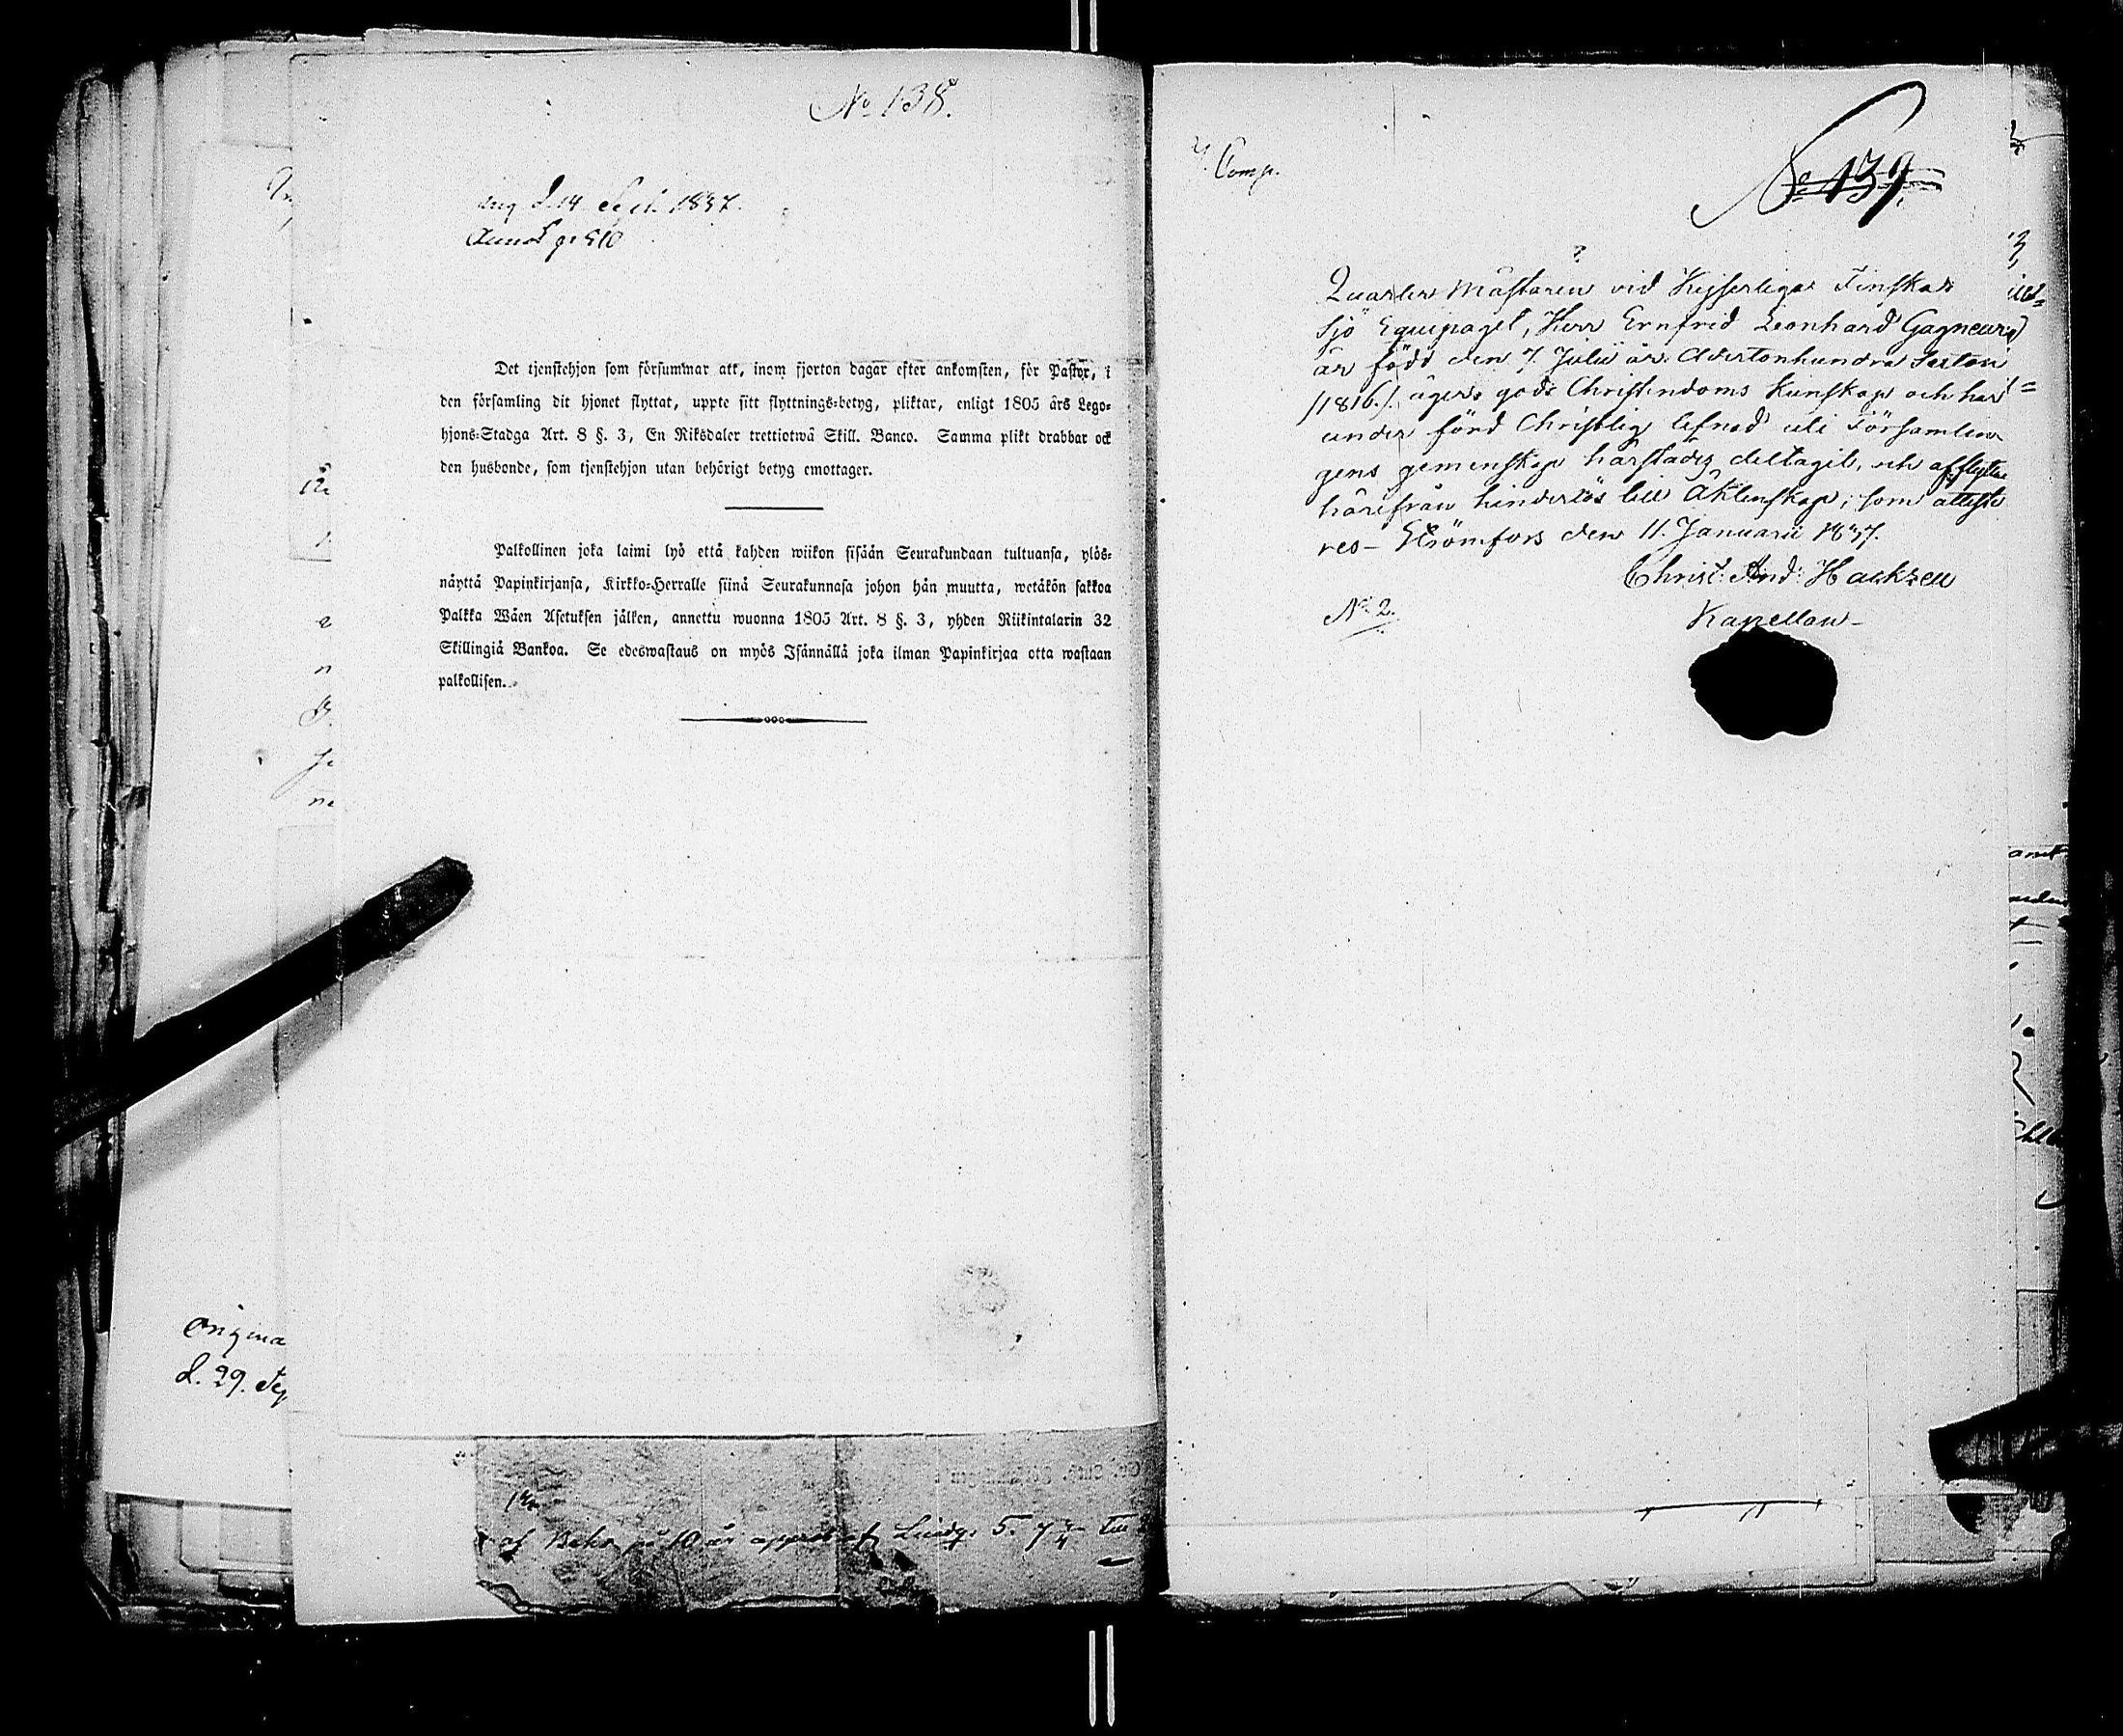 No 138.
d. 14 Sept. 1837.
Det tjenstehjon som försummar att, inom fjorton dagar efter ankomsten, för Pastor, i
den församling dit hjonet flyttat, uppte sitt flyttnings-betyg, pliktar, enligt 1805 års Lego-
hjons-Stadga Art. 8 §. 3, En Riksdaler trettiotwå Skill. Banco. Samma plikt drabbar ock
den husbonde, som tjenstehjon utan behörigt betyg emottager.
Palkollinen joka laimi lyö että kahden wiikon sisään Seurakundaan tultuansa, ylös-
näyttä Papinkirjansa, Kirkko-Herralle siinä Seurakunnasa johon hän muutta, wetäkön sakkoa
Palkka Wäen Asetuksen jälken, annettu wuonna 1805 Art. 8 §. 3, yhden Riikintalarin 32
Skillingiä Bankoa. Se edeswastaus on myös Isännällä joka ilman Papinkirjaa otta wastaan
palkollisen.
origina
d. 29. Sep
af på 10 år
Comp.
No 139.
Quarter Mästaren vid Kejserliga Finska
Sjö Equipaget, Herr Ernfrid Leonhard Gagneur
är född den 7. Julii år Adertonhundra Sexton
/1816./ äger god Christendoms Kunskap och har
under förd Christlig lefnad uti Församlin
gens gemenskap härstädes deltagit, och afflyttar
härifrån hinderlös till Äktenskap; som atteste
res– Strömfors den 11. Januarii 1837.
Christ: And: Hackzell
Kapellan–
No 2.